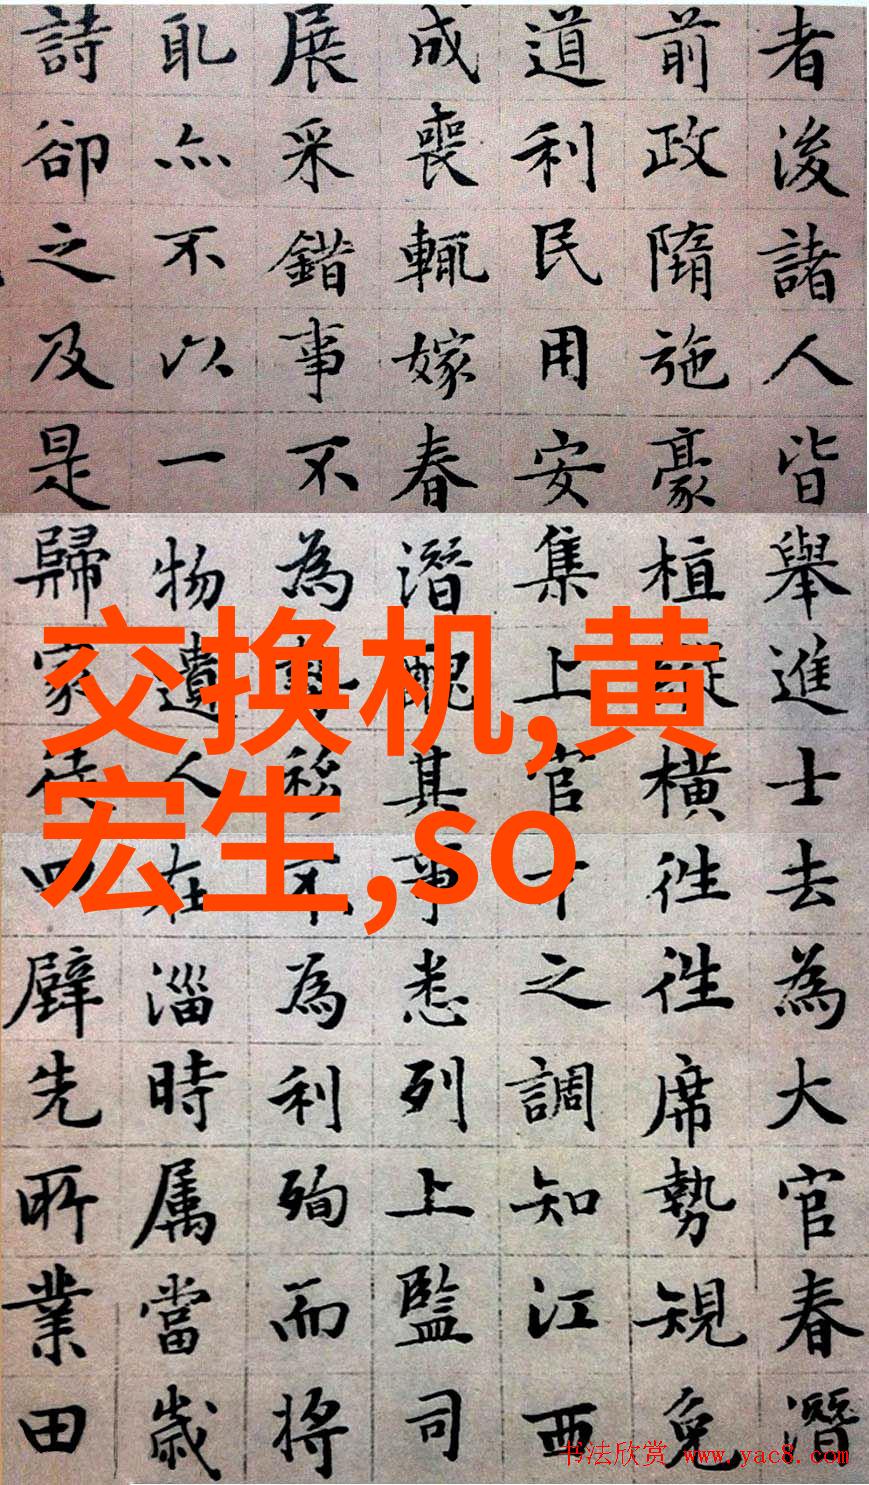 者後諸人皆舉進士去為大官春潛
前政隋施豪植縱橫徃徃席勢規免
道利民用安集上官之調知江西
成喪輒嫁春潛醜其事悉列上監司
展采錯事不為勢移不為利殉而將
耴亦不以一物遺人在淄時属當歲
詩卻之及是歸家徒四壁先所業田
交换机,黄
宏生,so
书法欣赏 www.yac8.com